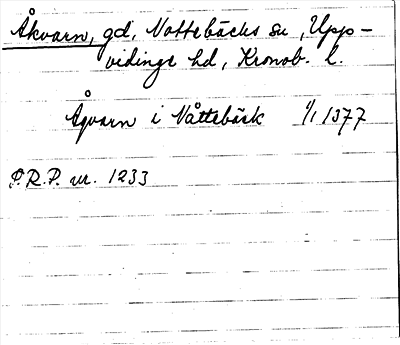 Åkvarn, gd, Nottebäcks sn, Upp-
vidinge hd, Kronob. l.
Åqvarn i Nåttebäck 1/1 1377
P.R.P. nr. 1233